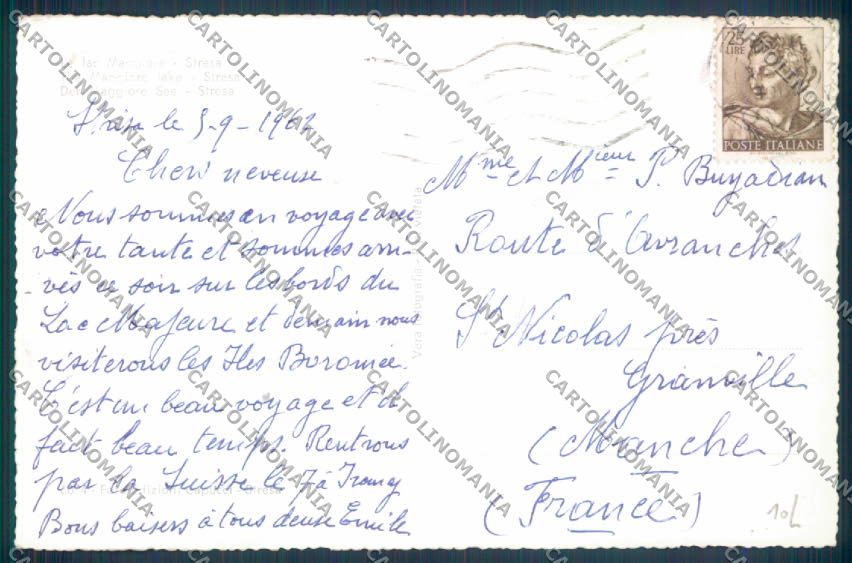 Le lac Majeur - Stresa
Maggiore lake - Stresa
Der Maggiore See - Stresa
Stresa le 5-9-1962
Chers neveuse
Nous sommes en voyage avec
votre tante et sommes arri-
vés ce soir sur les bords du
Lac Majeure et demain nous
visiterons les Iles Boromée.
C'est un beau voyage et il
fait beau temps. Rentrons
par la Suisse le 7 à Irany
Bons baisers à tous deuse Emile
Vera fotografia
25
LIRE
POSTE ITALIANE
Mme et Mieur P. Buyadian
Route d'Avranches
St Nicolas près
Granville
(Manche)
(France)
10L
CARTOLINOMANIA